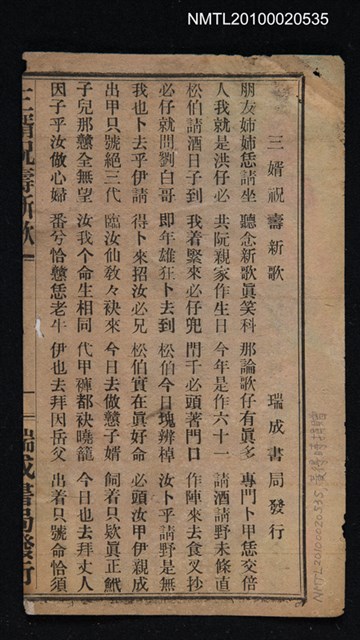 NMTL20100020535
三婿祝壽新歌　瑞成書局發行
朋友姉姉恁請坐　聽念新歌眞笑科　那論歌仔有眞多　專門卜甲恁交倍
人我就是洪仔必　共阮親家作生日　今年是作六十一　請酒請野未條直
松伯請酒日子到　我着緊來必仔兜　門千必頭著門口　作陣來去食叉抄
必仔就問劉白哥　即年雄狂卜去到　松伯今日塊辨棹　汝卜乎請野是無
我也卜去乎伊請　得卜來招汝必兄　松伯實在眞好命　必頭汝甲伊親成
出甲只號絕三代　臨汝仙敎々袂來　今日去做戇子婿　飼着只欵眞正䖙
子兒那戇全無望　汝我个命生相同　代甲褲都袂曉籠　今日也去拜丈人
因子乎汝做心婦　番兮恰戇恁老牛　伊也去拜因岳父　出着只號命恰須
三婿祝壽新歌
瑞成書局發行
NMTL20100020535